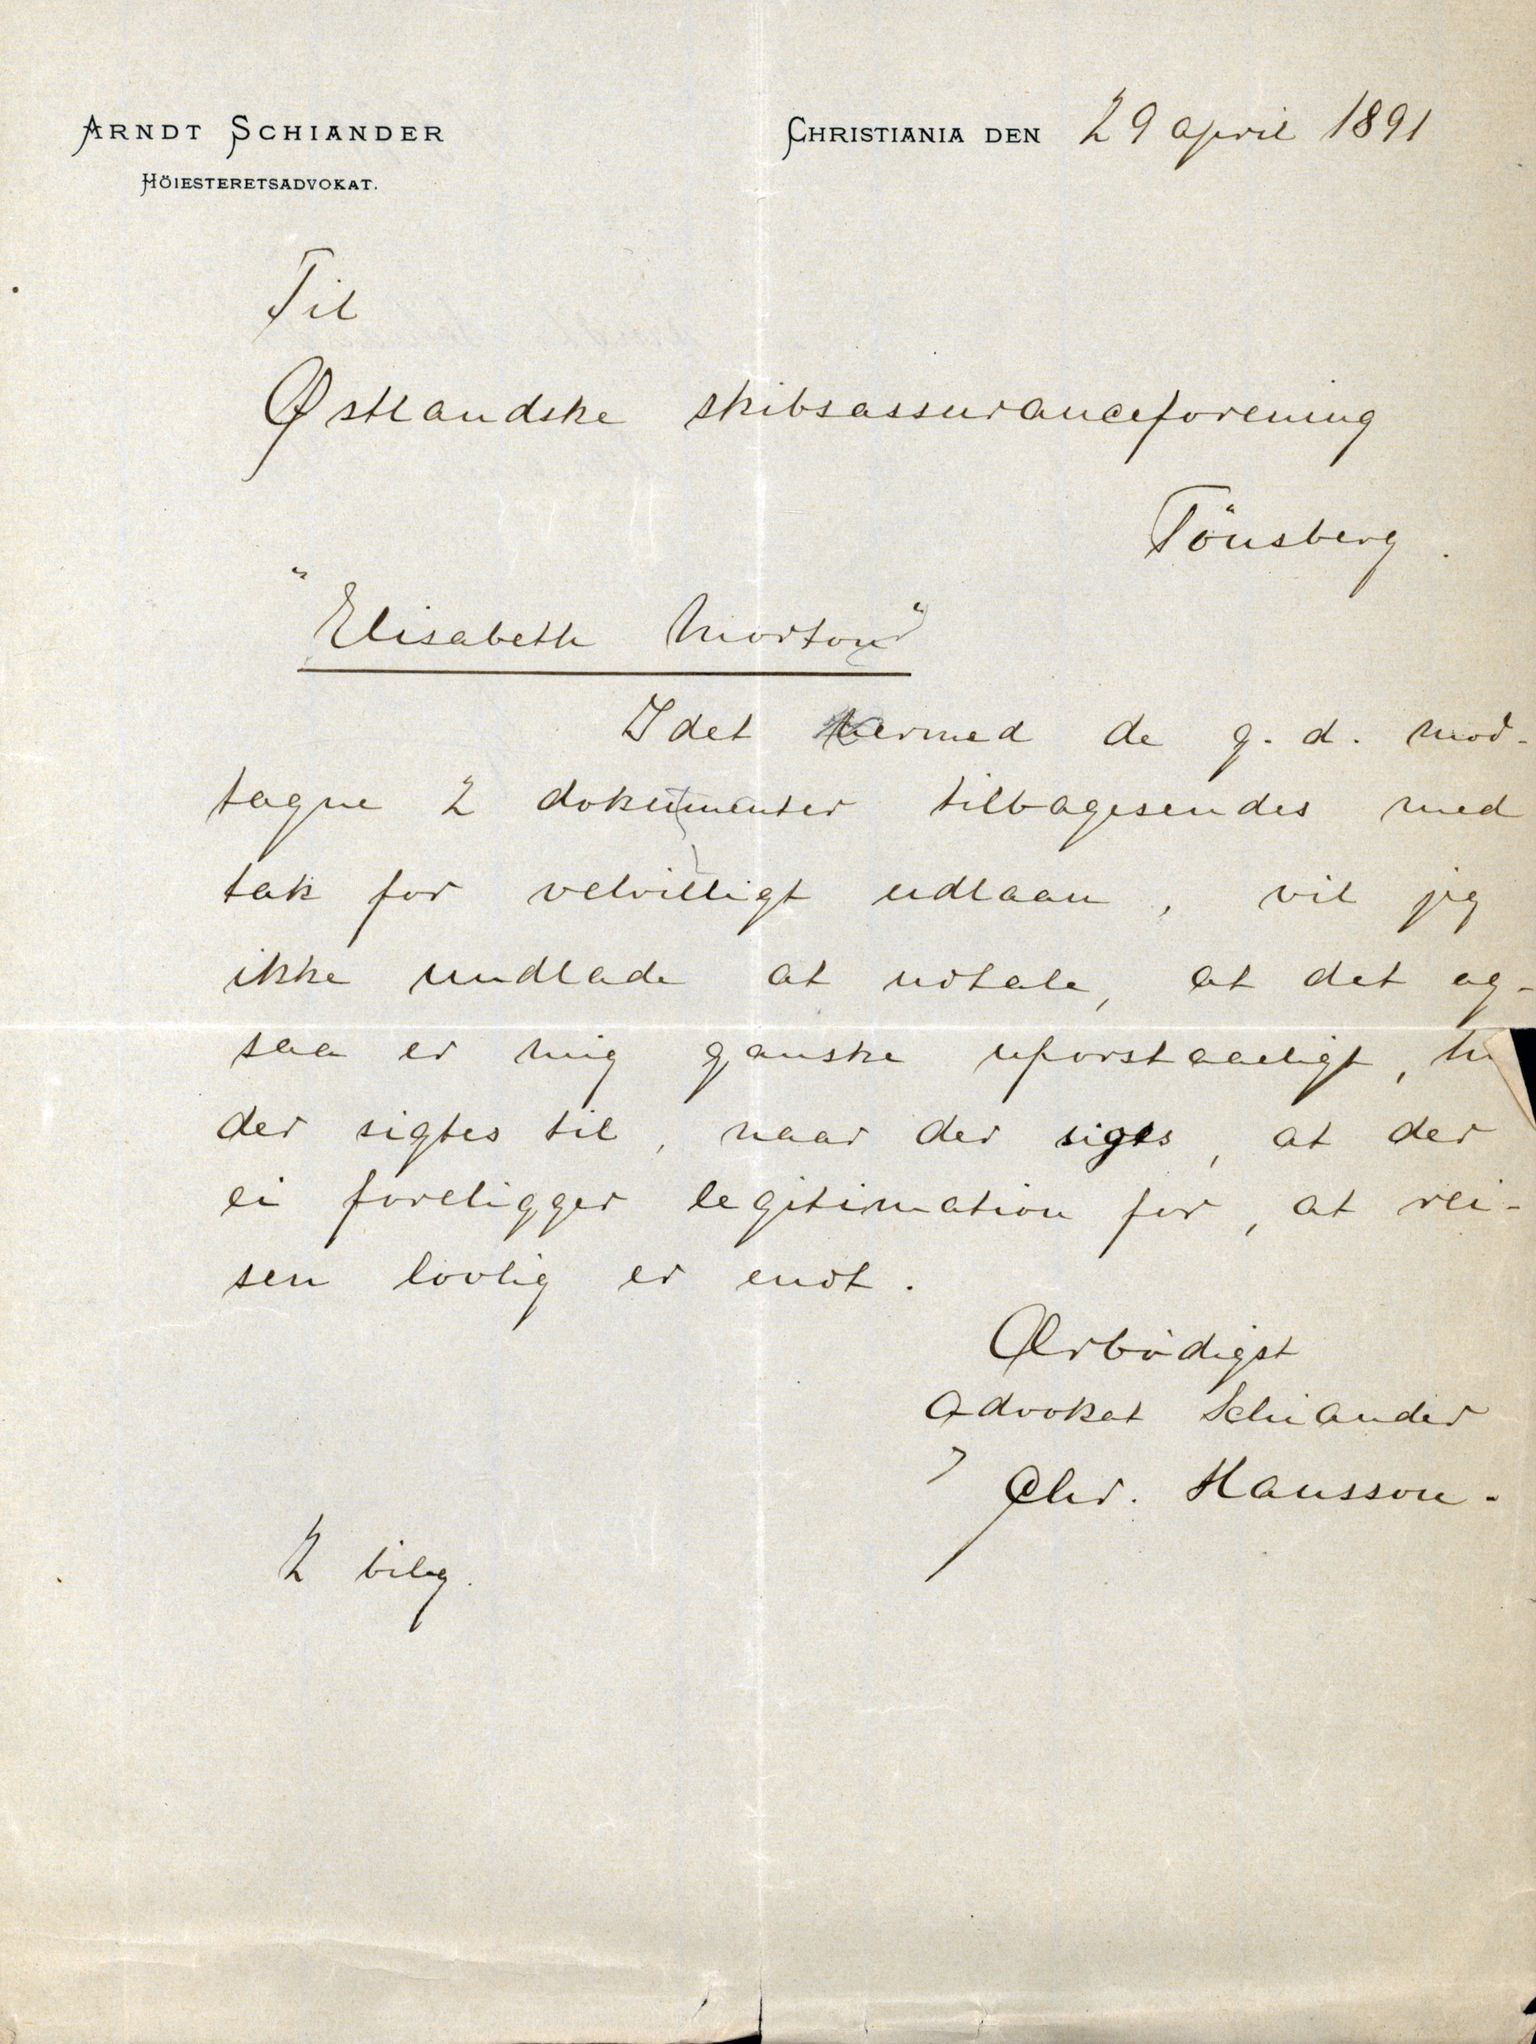 ARNDT SCHIANDER
HÖIESTERETSADVOKAT.
CHRISTIANIA DEN 29 april 1891
Til
Østlandske skibsassuranceforening
Tönsberg.
"Elisabeth Morton"
Idet hermed de g. d. mod-
tagne 2 dokumenter tilbagesendes med
tak for velvilligt udlaan, vil jeg
ikke undlade at udtale, at det og-
saa er mig ganske uforstaaeligt,
der sigtes til, naar der siges, at der
ei foreligger legitimation for, at rei-
sen lovlig er endt.
Ærbödigst
Advokat Schiander
Chr. Hansson.
2 bilag.